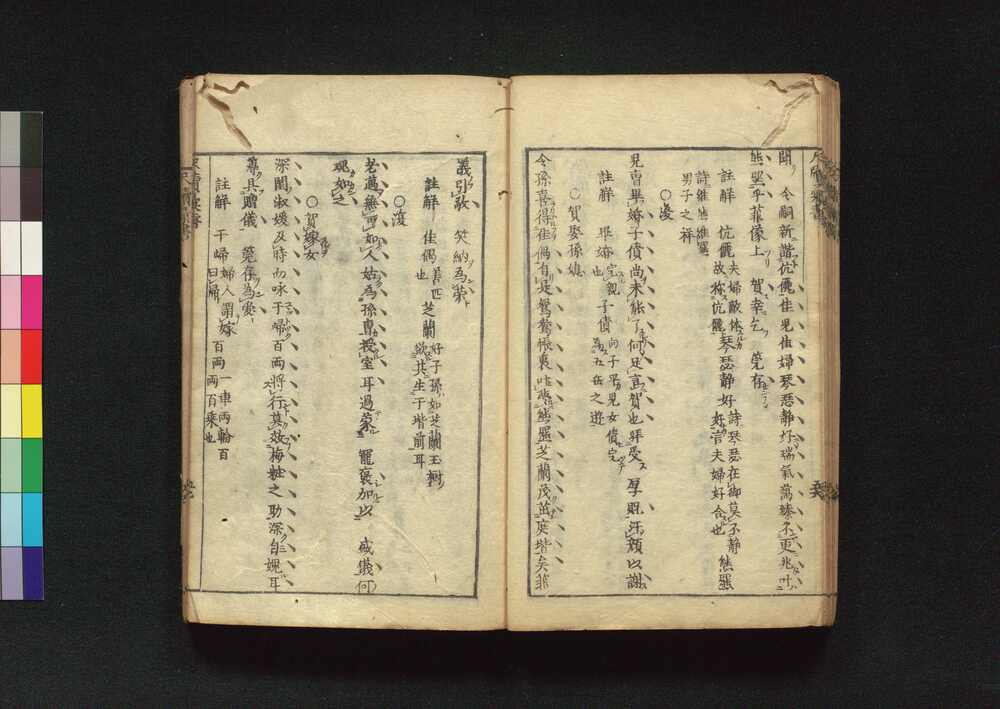 聞令嗣新諧伉儷佳兒佳婦琴瑟静好瑞氣萬臻不更兆叶
熊羆乎菲儀上賀幸乞筦存
註解 伉儷 夫婦敵体故称伉儷 琴瑟静好 詩琴瑟在御莫不静好言夫婦好合也 熊羆
詩維熊維羆男子之祥
○復
兒曹畢婚子債尚未能了何足言賀也拜受厚貺汗顔以謝
註解 畢婚 完親也 子債 向子平兒女債完為五岳之遊
○賀娶孫婦
令孫喜得佳偶有是鴛鴦振裘叶熊羆芝蘭茂茁庭堦矣菲
義引敬 笑納為榮
註解 佳偶 美匹也 芝蘭 好子孫如芝蘭玉樹欲其生于堦前耳
○復
老邁無可如人姑為孫曹授室耳過蒙 寵褒加以 威儀何
愧如之
○賀嫁女
深閨淑媛及時而咏于歸百両将行莫效梅粧之助深自媿耳
尊具贈儀 筦存為愛
註解 于歸 婦人謂嫁曰歸 百両 一車両輪百両百乗也